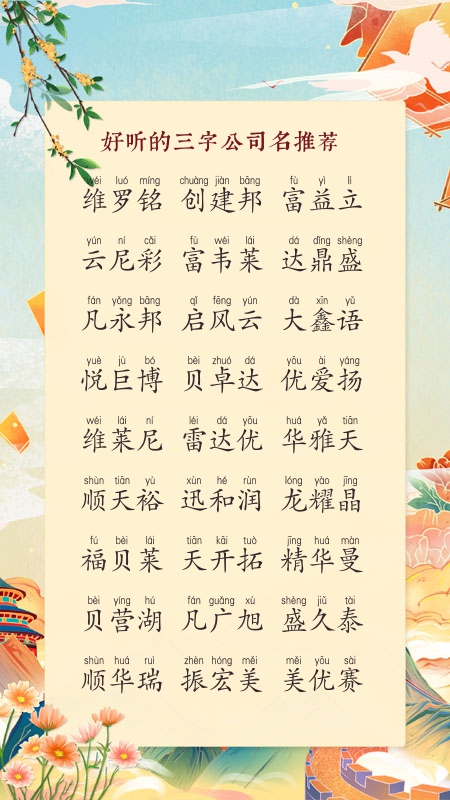 好听的三字公司名推荐
wéi luó míng chuàng jiàn bāng fù yì lì
维罗铭 创建邦 富益立
yún ní cǎi fù wéi lái dá dǐng shèng
云尼彩 富韦莱 达鼎盛
fán yǒng bāng qǐ fēng yún dà xīn yǔ
凡永邦 启风云 大鑫语
yuè jù bó bèi zhuó dá yōu ài yáng
悦巨博 贝卓达 优爱扬
wéi lái ní léi dá yōu huá yǎ tiān
维莱尼 雷达优 华雅天
shùn tiān yù xùn hé rùn lóng yào jīng
顺天裕 迅和润 龙耀晶
fú bèi lái tiān kāi tuò jīng huá màn
福贝莱 天开拓 精华曼
bèi yíng hú fán guǎng xù shèng jiǔ tài
贝营湖 凡广旭 盛久泰
shùn huá ruì zhèn hóng měi měi yōu sài
顺华瑞 振宏美 美优赛